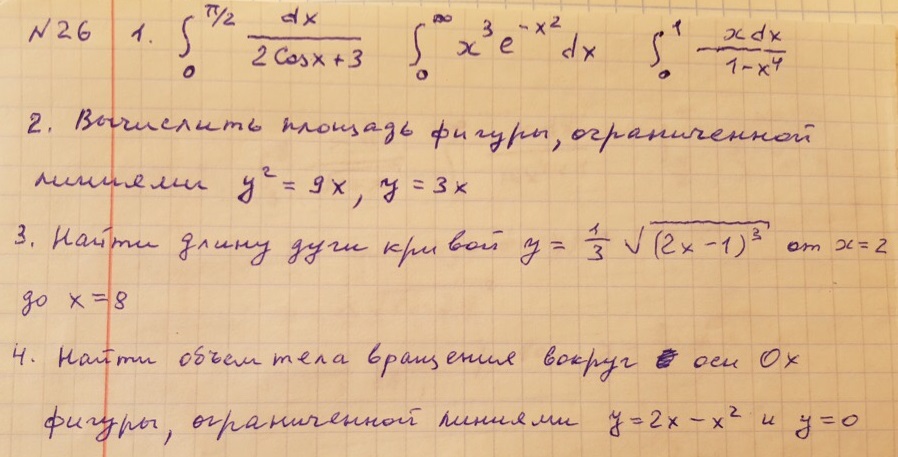 №26 1. ∫₀^(π/2) dx/(2Cosx+3) ∫₀^∞ x³e^(-x²)dx ∫₀¹ xdx/(1-x⁴)
2. Вычислить площадь фигуры, ограниченной
линиями y² = 9x, y = 3x
3. Найти длину дуги кривой y = 1/3 √((2x-1)³) от x=2
до x=8
4. Найти объем тела вращения вокруг оси Ox
фигуры, ограниченной линиями y=2x-x² и y=0